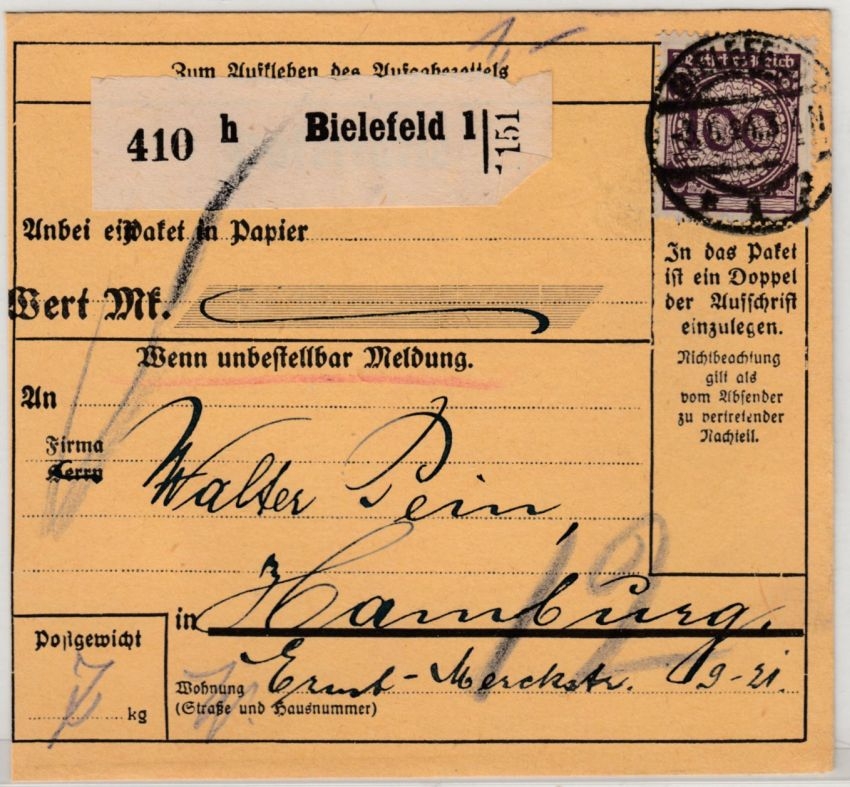 1,—
Zum Aufkleben des Aufgabezettels
410 h Bielefeld 1
151
Deutsches Reich
100
Anbei ein Paket in Papier
Wert Mk.
In das Paket
ist ein Doppel
der Aufschrift
einzulegen.
Nichtbeachtung
gilt als
vom Absender
zu vertretender
Nachteil.
Wenn unbestellbar Meldung.
An
Firma
Herrn
Walter Pein,
12
in Hamburg.
Postgewicht
kg
Wohnung Ernst-Merckstr. 19-21.
(Straße und Hausnummer)